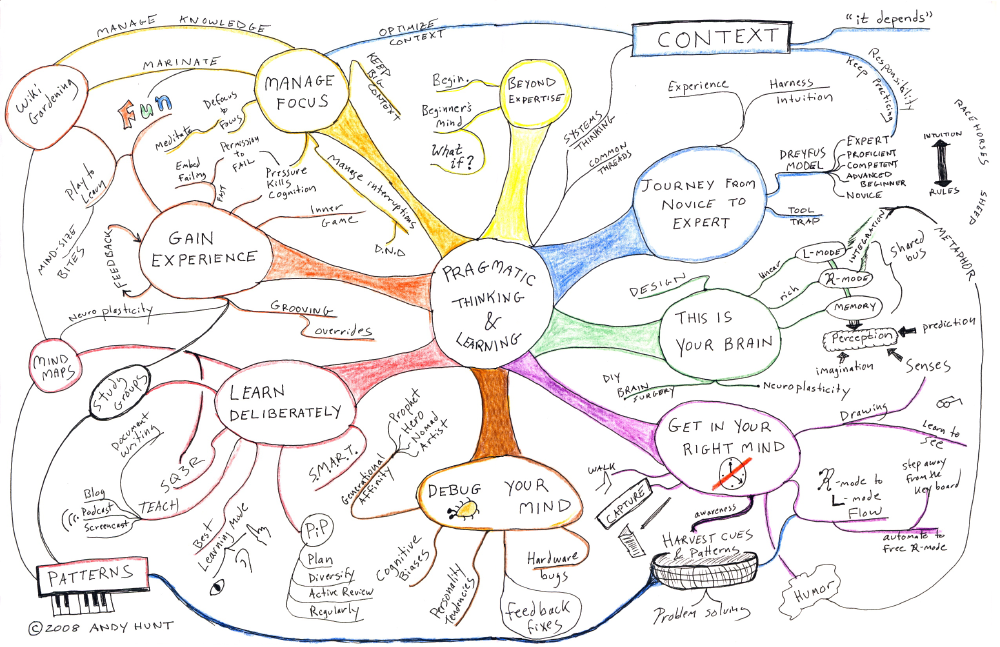 MANAGE KNOWLEDGE
MARINATE
Wiki
Gardening
FUN
MANAGE
FOCUS
Defocus
to
Focus
Meditate
KEEP
BIG
CONTEXT
OPTIMIZE
CONTEXT
Manage interruptions
D.N.D
Begin.
Beginner's
Mind
What
if?
BEYOND
EXPERTISE
CONTEXT
"it depends"
Responsibility
Keep Practicing
SYSTEMS
THINKING
COMMON
THREADS
Experience
Harness
Intuition
JOURNEY FROM
NOVICE TO
EXPERT
DREYFUS
MODEL
EXPERT
PROFICIENT
COMPETENT
ADVANCED
BEGINNER
NOVICE
TOOL
TRAP
RACEHORSES
INTUITION
RULES
SHEEP
Play to
Learn
MIND-SIZE
BITES
FEEDBACK
Embed
Failing
Permission
to
FAIL
Pressure
Kills
Cognition
Inner
Game
GAIN
EXPERIENCE
GROOVING
overrides
Neuroplasticity
PRAGMATIC
THINKING
&
LEARNING
DESIGN
THIS IS
YOUR BRAIN
linear
L-MODE
rich
R-MODE
MEMORY
INTEGRATION
Shared
bus
METAPHOR
Perception
prediction
imagination
Senses
DIY
BRAIN
SURGERY
Neuroplasticity
MIND
MAPS
Study
Groups
LEARN
DELIBERATELY
Document
Writing
SQ3R
TEACH
Blog
Podcast
Screencast
Best
Learning Mode
S.M.A.R.T.
PiP
Plan
Diversify
Active Review
Regularly
Generational
Affinity
Prophet
Hero
Nomad
Artist
DEBUG YOUR
MIND
Cognitive
Biases
Personality
Tendencies
Hardware
bugs
feedback
fixes
GET IN YOUR
RIGHT MIND
Drawing
Learn to
See
WALK
CAPTURE
awareness
R-mode to
L-mode
Flow
step away
from the
keyboard
automate to
free R-mode
HARVEST CUES
& Patterns
Problem solving
HUMOR
PATTERNS
© 2008 ANDY HUNT